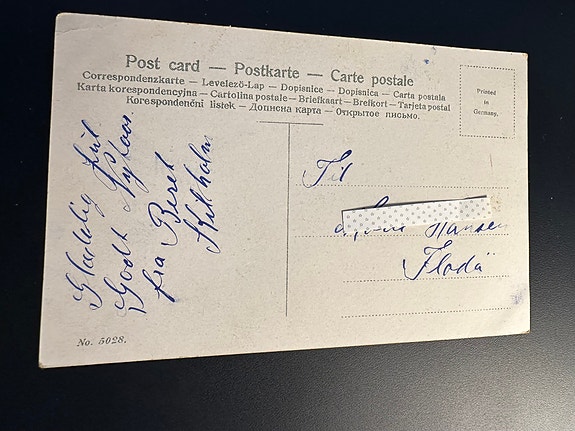 Post card — Postkarte — Carte postale
Correspondenzkarte — Levelező-Lap — Dopisnice — Dopisnica — Carta postala
Karta korespondencyjna — Cartolina postale — Briefkaart — Brefkort — Tarjeta postal
Korespondenční listek — Дописна карта — Открытое письмо.
Printed
in
Germany.
Gladelig Jul
Godt Nytaar
fra Beret
Kilholm
Til
Hansen
Flodä
No. 5028.